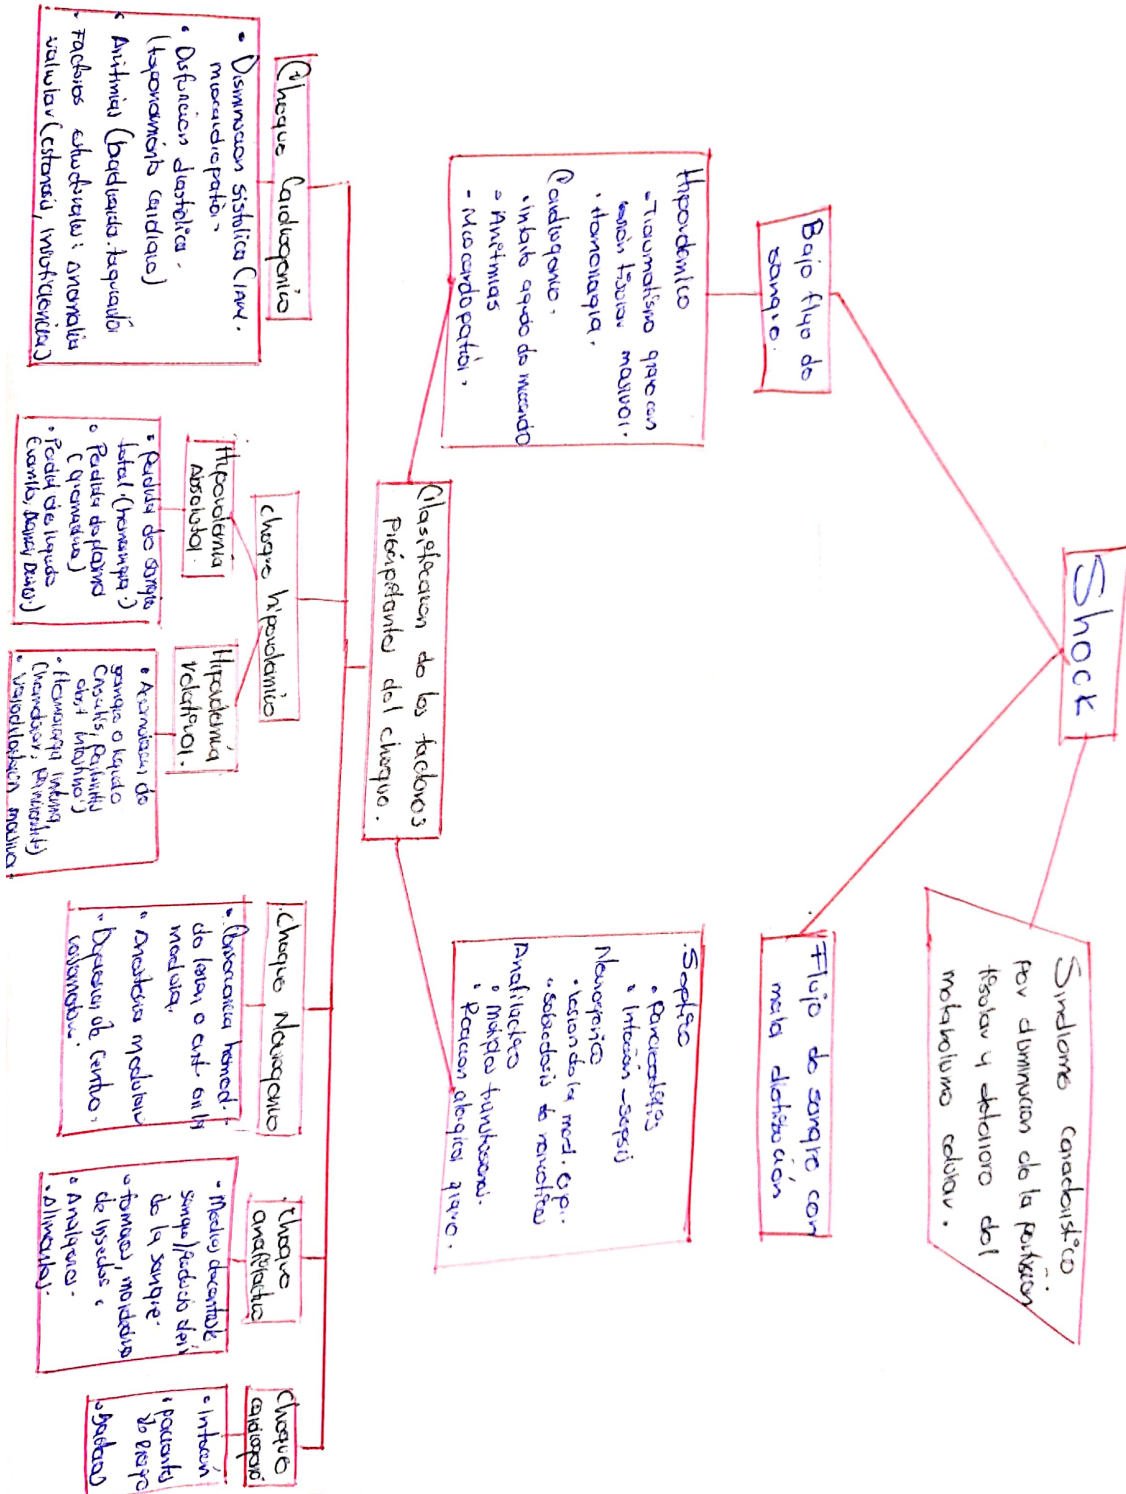 Shock
Sindrome caracteristico
por disminucion de la perfusion
tisular y deterioro del
metabolismo celular.
Bajo flujo de
sangre.
Flujo de sangre con
mala distribución
Hipovolemico
- Traumatismo grave con
lesión tisular masiva.
• Hemorragia.
Cardiogenico.
• infarto agudo de miocardio
• Arritmias
- Miocardopatia.
Septico
• Infección - sepsis
Neurogenico
• Lesion de la med. espi.
• sobredosis de narcoticos
Anafilactico
• Multiples transfusiones.
• Reaccion alergica grave.
Clasificacion de los factores
precipitantes del choque.
Choque Cardiogenico
• Disminucion sistolica (IAM.
miocardiopatia.
• Disfuncion diastolica.
(taponamiento cardiaco)
• Arritmias (bradicardia. taquicardia
• Factores estructurales: anomalia
valvular (estenosis, insuficiencia)
choque hipovolemico
Hipovolemia
Absoluta.
• perdida de sangre
total. (hemorragia.)
• Perdida de plasma
(quemadura)
• Perdida de liquido
Hipovolemia
relativa.
• Acumulacion de
sangre o liquido
obst intestino)
• Hemorragia interna
• vasodilatacion masiva.
Choque Neurogenico
• Consecuencia hemod.
de lesion o enf. en la
medula.
• Anestesia medular
• Depresion de Centro.
vasomotor.
• Choque
anafilactico
• Medios de contraste
sangre/producto deri
de la sangre.
• farmacos, mordedura
de insectos
• Analgesicos.
• Alimentos.
Choque
• Infeccion
• pacientes
de riesgo
• Bacterias